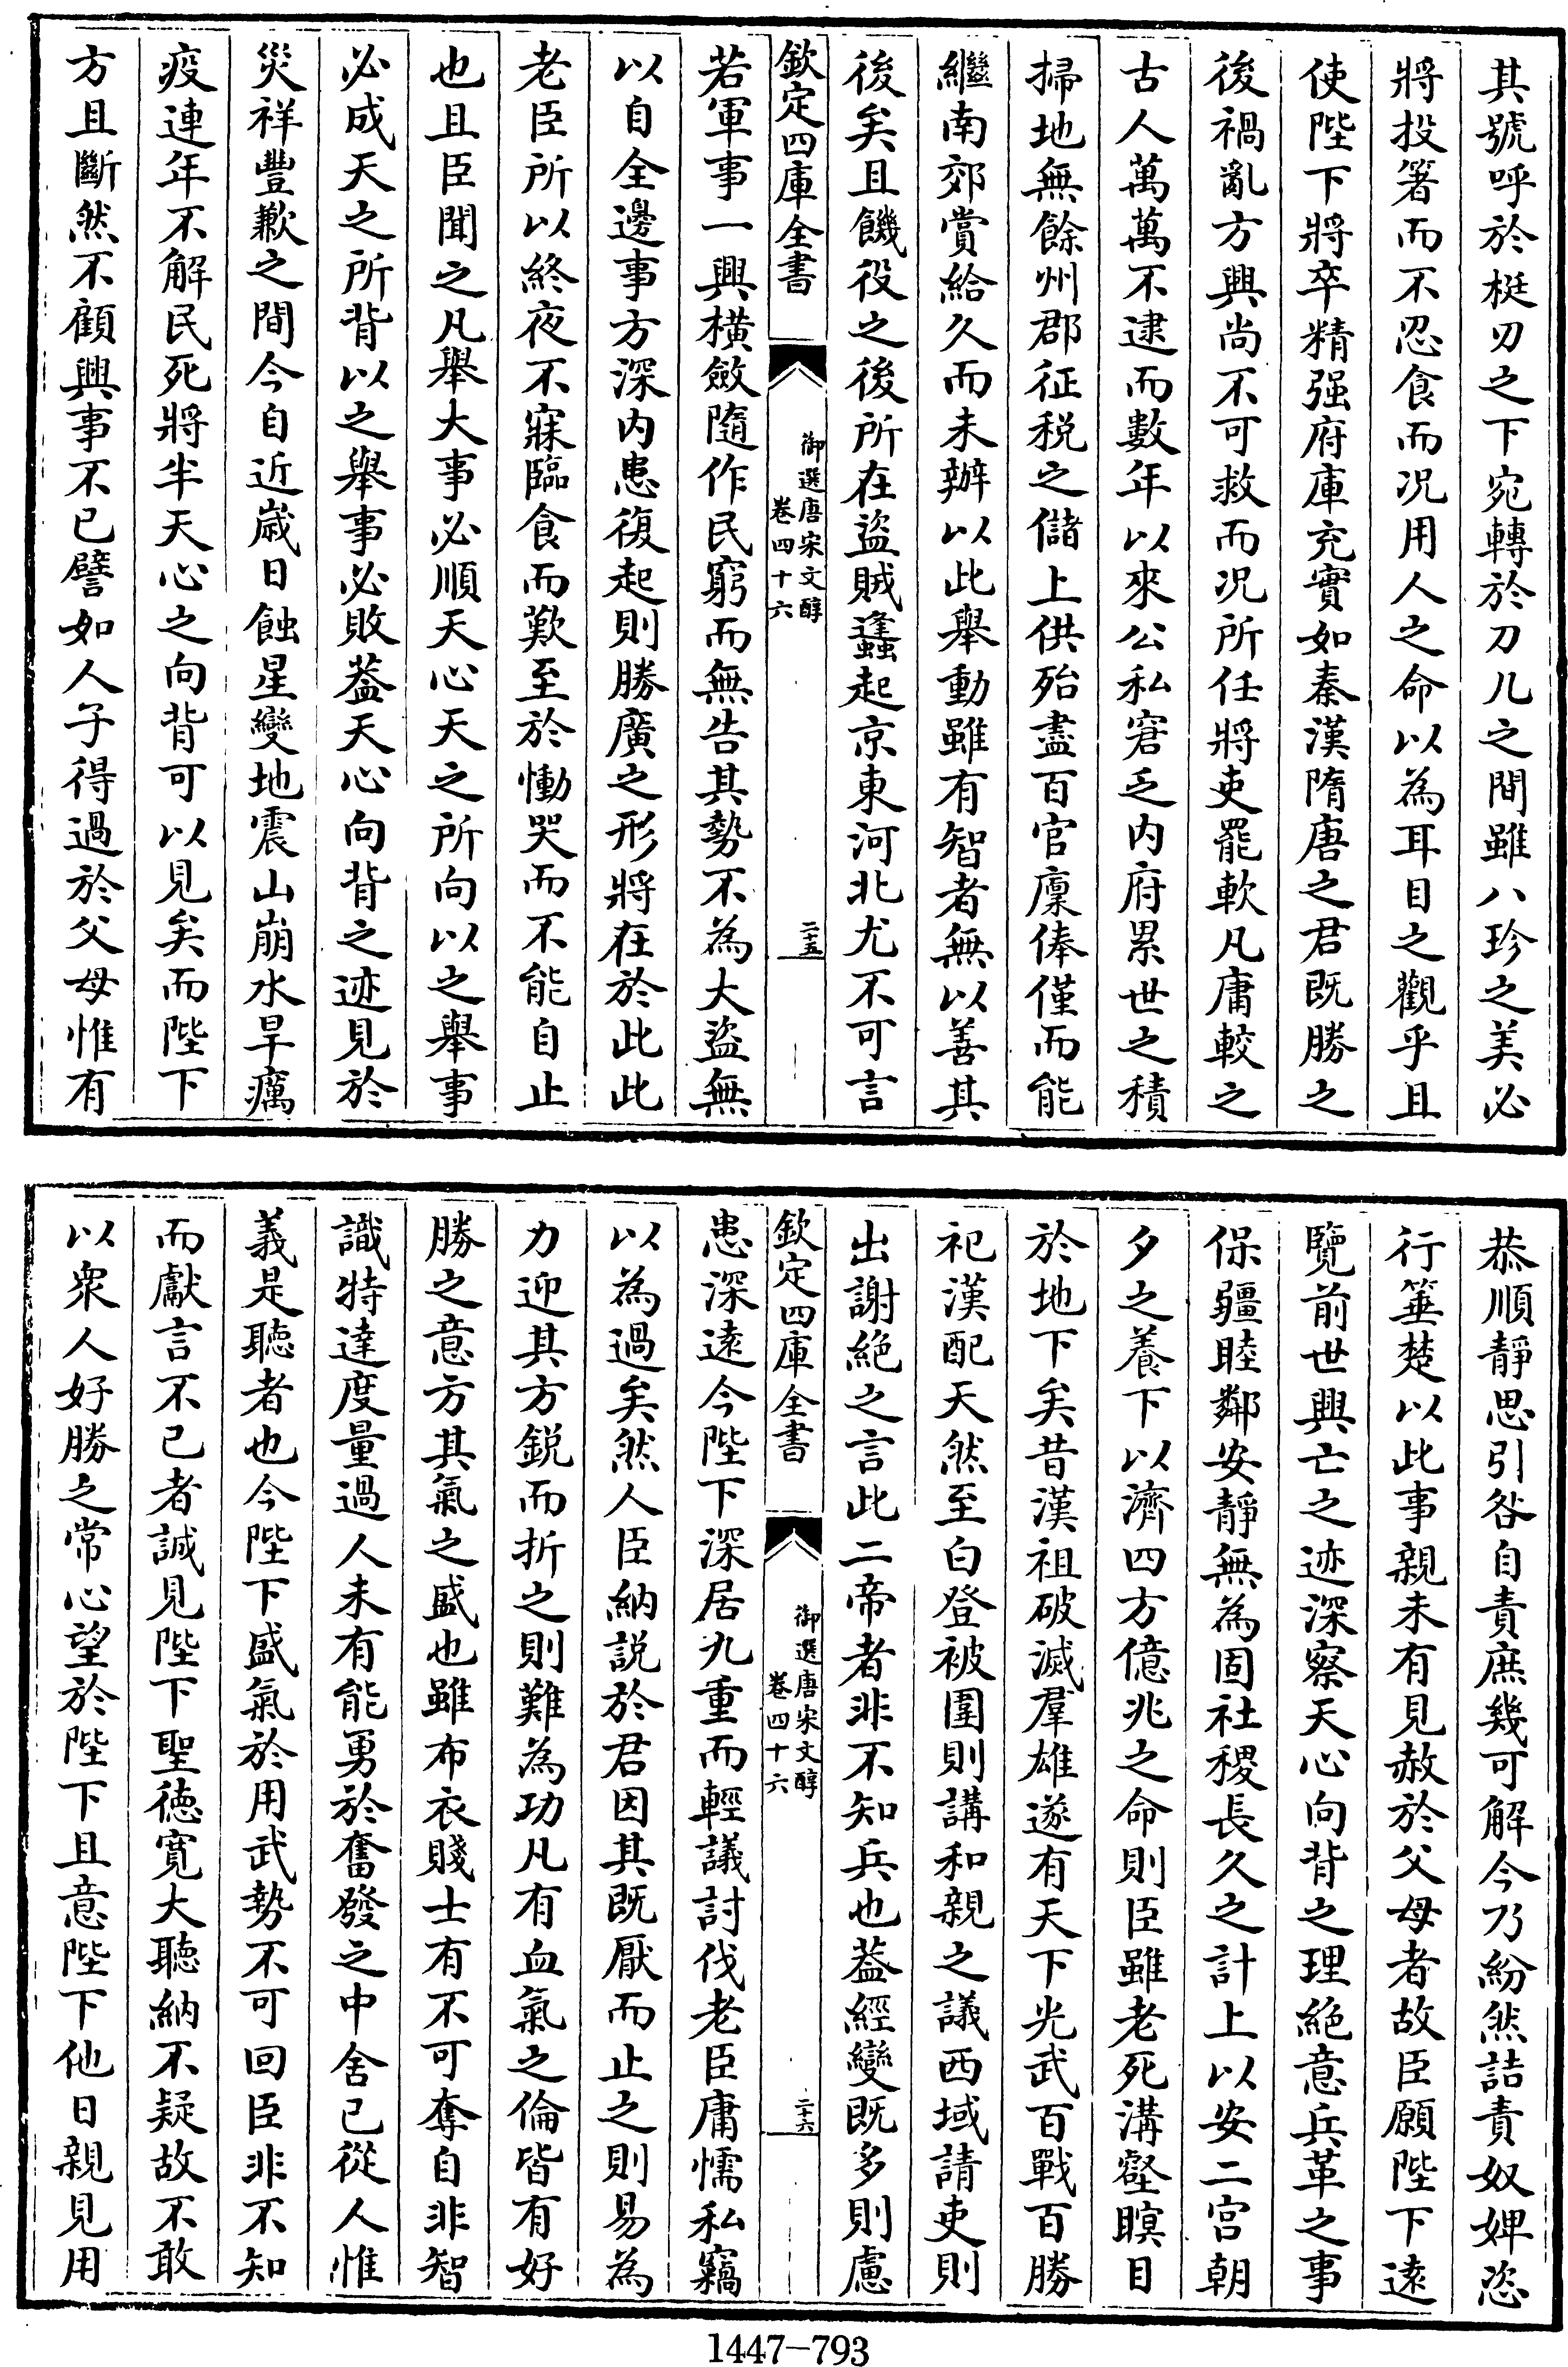 其號呼於梃刃之下宛轉於刀几之間雖八珍之美必
將投箸而不忍食而况用人之命以為耳目之觀乎且
使陛下將卒精强府庫充實如秦漢隋唐之君既勝之
後禍亂方興尚不可救而况所任將吏罷軟凡庸較之
古人萬萬不逮而數年以來公私窘乏内府累世之積
掃地無餘州郡征税之儲上供殆盡百官廩俸僅而能
繼南郊賞給久而未辦以此舉動雖有智者無以善其
後矣且饑役之後所在盜賊蠭起京東河北尤不可言
欽定四庫全書
御選唐宋文醇
卷四十六
二十五
若軍事一興横斂隨作民窮而無告其勢不為大盜無
以自全邊事方深内患復起則勝廣之形將在於此此
老臣所以終夜不寐臨食而歎至於慟哭而不能自止
也且臣聞之凡舉大事必順天心天之所向以之舉事
必成天之所背以之舉事必敗葢天心向背之迹見於
災祥豐歉之間今自近歲日蝕星變地震山崩水旱癘
疫連年不解民死將半天心之向背可以見矣而陛下
方且斷然不顧興事不已譬如人子得過於父母惟有
恭順靜思引咎自責庶幾可解今乃紛然詰責奴婢恣
行箠楚以此事親未有見赦於父母者故臣願陛下遠
覽前世興亡之迹深察天心向背之理絶意兵革之事
保疆睦鄰安靜無為固社稷長久之計上以安二宫朝
夕之養下以濟四方億兆之命則臣雖老死溝壑瞑目
於地下矣昔漢祖破滅羣雄遂有天下光武百戰百勝
祀漢配天然至白登被圍則講和親之議西域請吏則
出謝絶之言此二帝者非不知兵也葢經變既多則慮
欽定四庫全書
御選唐宋文醇
卷四十六
二十六
患深遠今陛下深居九重而輕議討伐老臣庸懦私竊
以為過矣然人臣納說於君因其既厭而止之則易為
力迎其方鋭而折之則難為功凡有血氣之倫皆有好
勝之意方其氣之盛也雖布衣賤士有不可奪自非智
識特達度量過人未有能勇於奮發之中舍已從人惟
義是聽者也今陛下盛氣於用武勢不可回臣非不知
而獻言不已者誠見陛下聖德寛大聽納不疑故不敢
以衆人好勝之常心望於陛下且意陛下他日親見用
1447-793